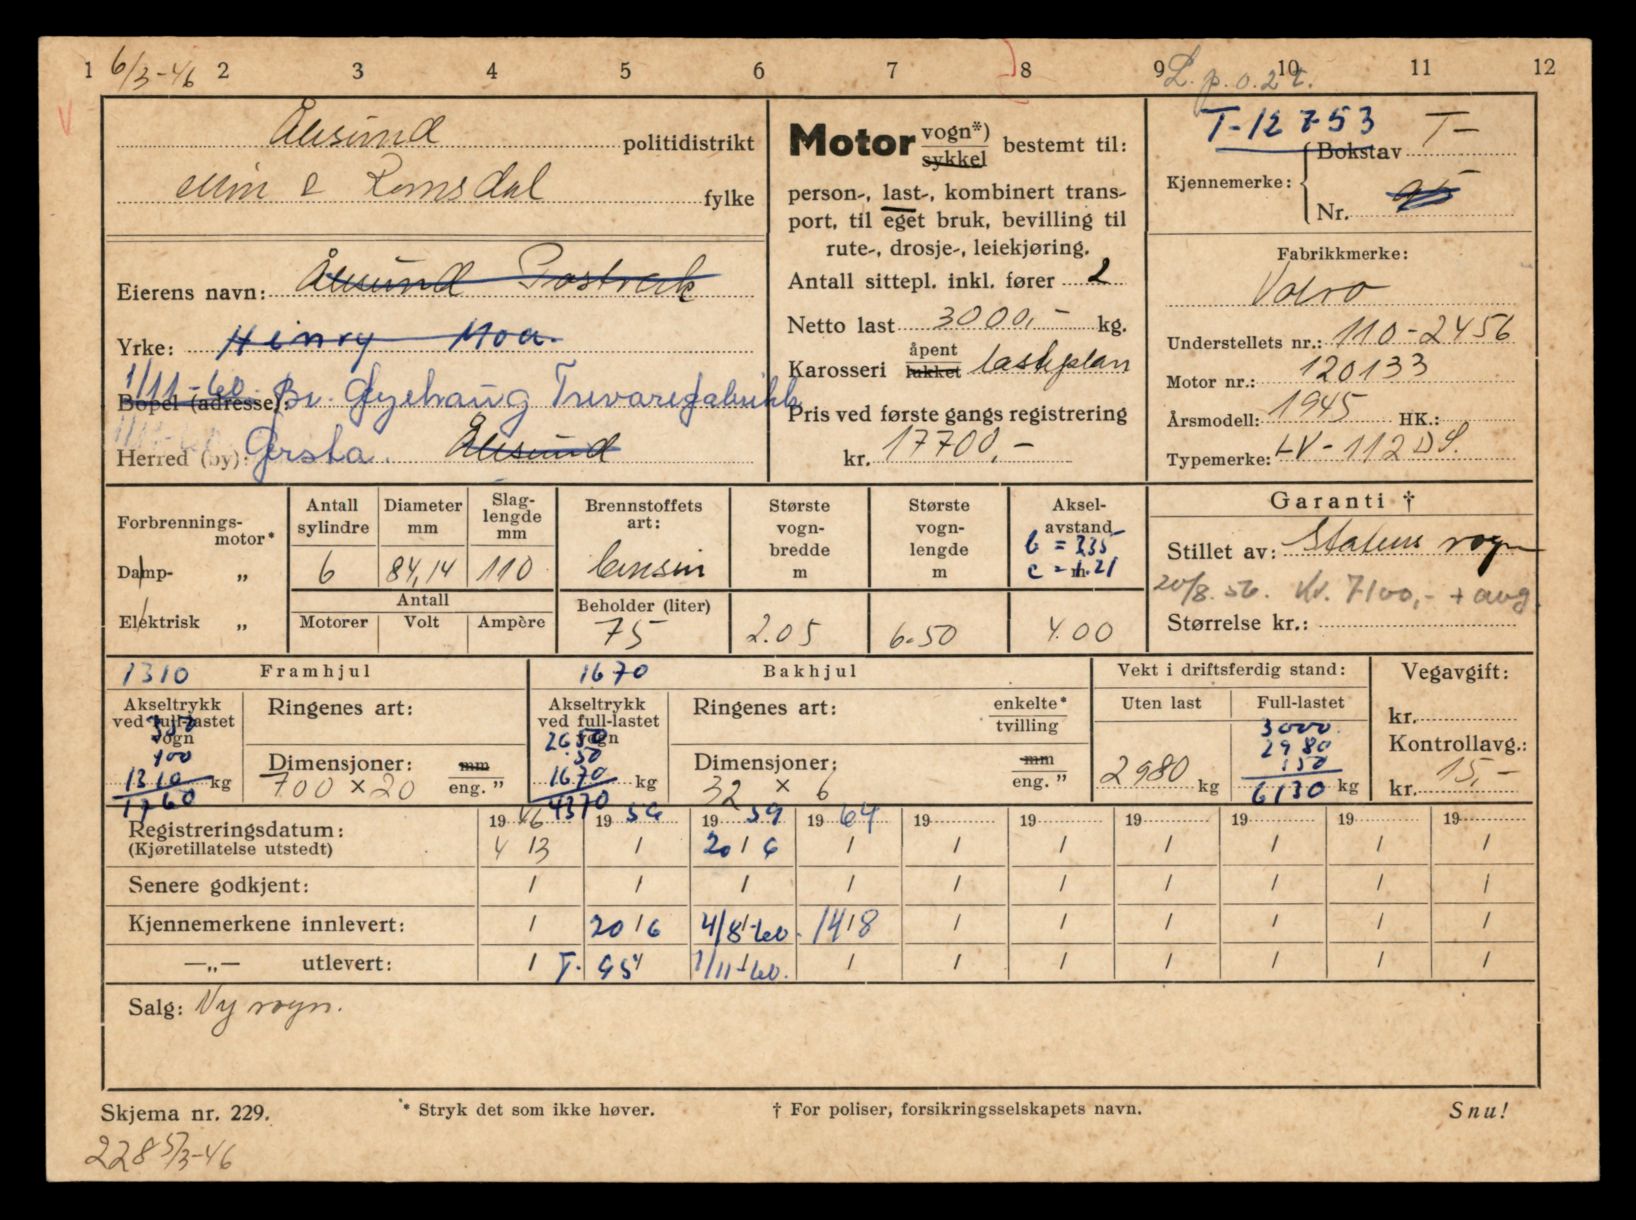 1 2 3 4 5 6 7 8 9 10 11 12
6/3-46
L. p. o. 2 t.
Ålesund politidistrikt
Møre & Romsdal fylke
Eierens navn: Ålesund Postverk
Yrke: Henry Moa.
1/11-60. Br. Gjerhaug Trevarefabrikk
Bopel (adresse):
Herred (by): Ørsta. Ålesund
Motor vogn*) sykkel bestemt til:
person-, last-, kombinert trans-
port, til eget bruk, bevilling til
rute-, drosje-, leiekjøring.
Antall sittepl. inkl. fører 2
Netto last 3000,- kg.
Karosseri åpent lukket lasteplan
Pris ved første gangs registrering
kr. 17700,-
T-12753
Kjennemerke: Bokstav T-
Nr. 95
Fabrikkmerke:
Volvo
Understellets nr.: 110-2456
Motor nr.: 120133
Årsmodell: 1945 HK.:
Typemerke: LV-112 DS.
Forbrennings-
motor*
Damp- „
Elektrisk „
Antall sylindre
6
Diameter mm
84,14
Slag-
lengde
mm
110
Antall
Motorer Volt Ampère
Brennstoffets art:
bensin
Beholder (liter)
75
Største
vogn-
bredde
m
2.05
Største
vogn-
lengde
m
6.50
Aksel-
avstand
m.
b = 2,35
c = 1.21
4.00
Garanti †
Stillet av: Statens vogn
20/8.56. Kr. 7100,- + avg.
Størrelse kr.:
1310 Framhjul
Akseltrykk
ved full-lastet
vogn
350
100
1310 kg
1760
Ringenes art:
Dimensjoner: mm
700 x 20 eng. ”
1670 Bakhjul
Akseltrykk
ved full-lastet
vogn
2650
50
1670 kg
4370
Ringenes art: enkelte*
tvilling
Dimensjoner: mm
32 x 6 eng. ”
Vekt i driftsferdig stand:
Uten last
2980 kg
Full-lastet
3000
2980
150
6130 kg
Vegavgift:
kr.
Kontrollavg.:
kr. 15,-
Registreringsdatum: 1946 1956 1959 1964 19 19 19 19 19 19
(Kjøretillatelse utstedt) 4/3 / 20/6 / / / / / / /
Senere godkjent: / / / / / / / / / /
Kjennemerkene innlevert: / 20/6 4/8-60. 14/8 / / / / / /
—„— utlevert: / T. 95 1/11-60. / / / / / / /
Salg: Ny vogn.
Skjema nr. 229. * Stryk det som ikke høver. † For poliser, forsikringsselskapets navn. Snu!
228 5/3-46